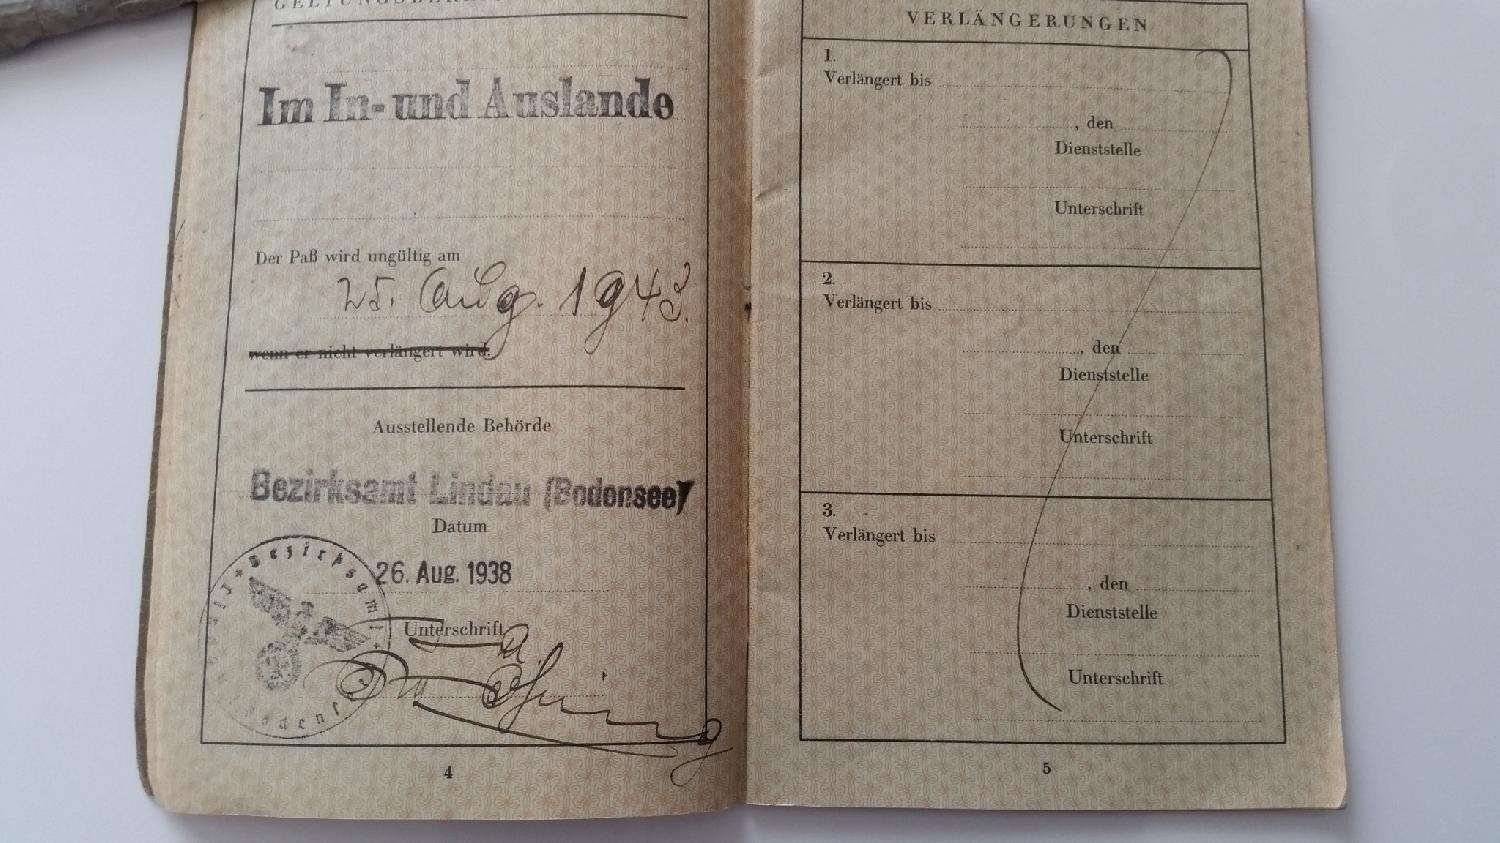 GELTUNGSBEREICH
Im In- und Auslande
Der Paß wird ungültig am
25. Aug. 1943.
wenn er nicht verlängert wird.
Ausstellende Behörde
Bezirksamt Lindau (Bodensee)
Datum
26. Aug. 1938
Unterschrift
4
VERLÄNGERUNGEN
1.
Verlängert bis
, den
Dienststelle
Unterschrift
2.
Verlängert bis
, den
Dienststelle
Unterschrift
3.
Verlängert bis
, den
Dienststelle
Unterschrift
5